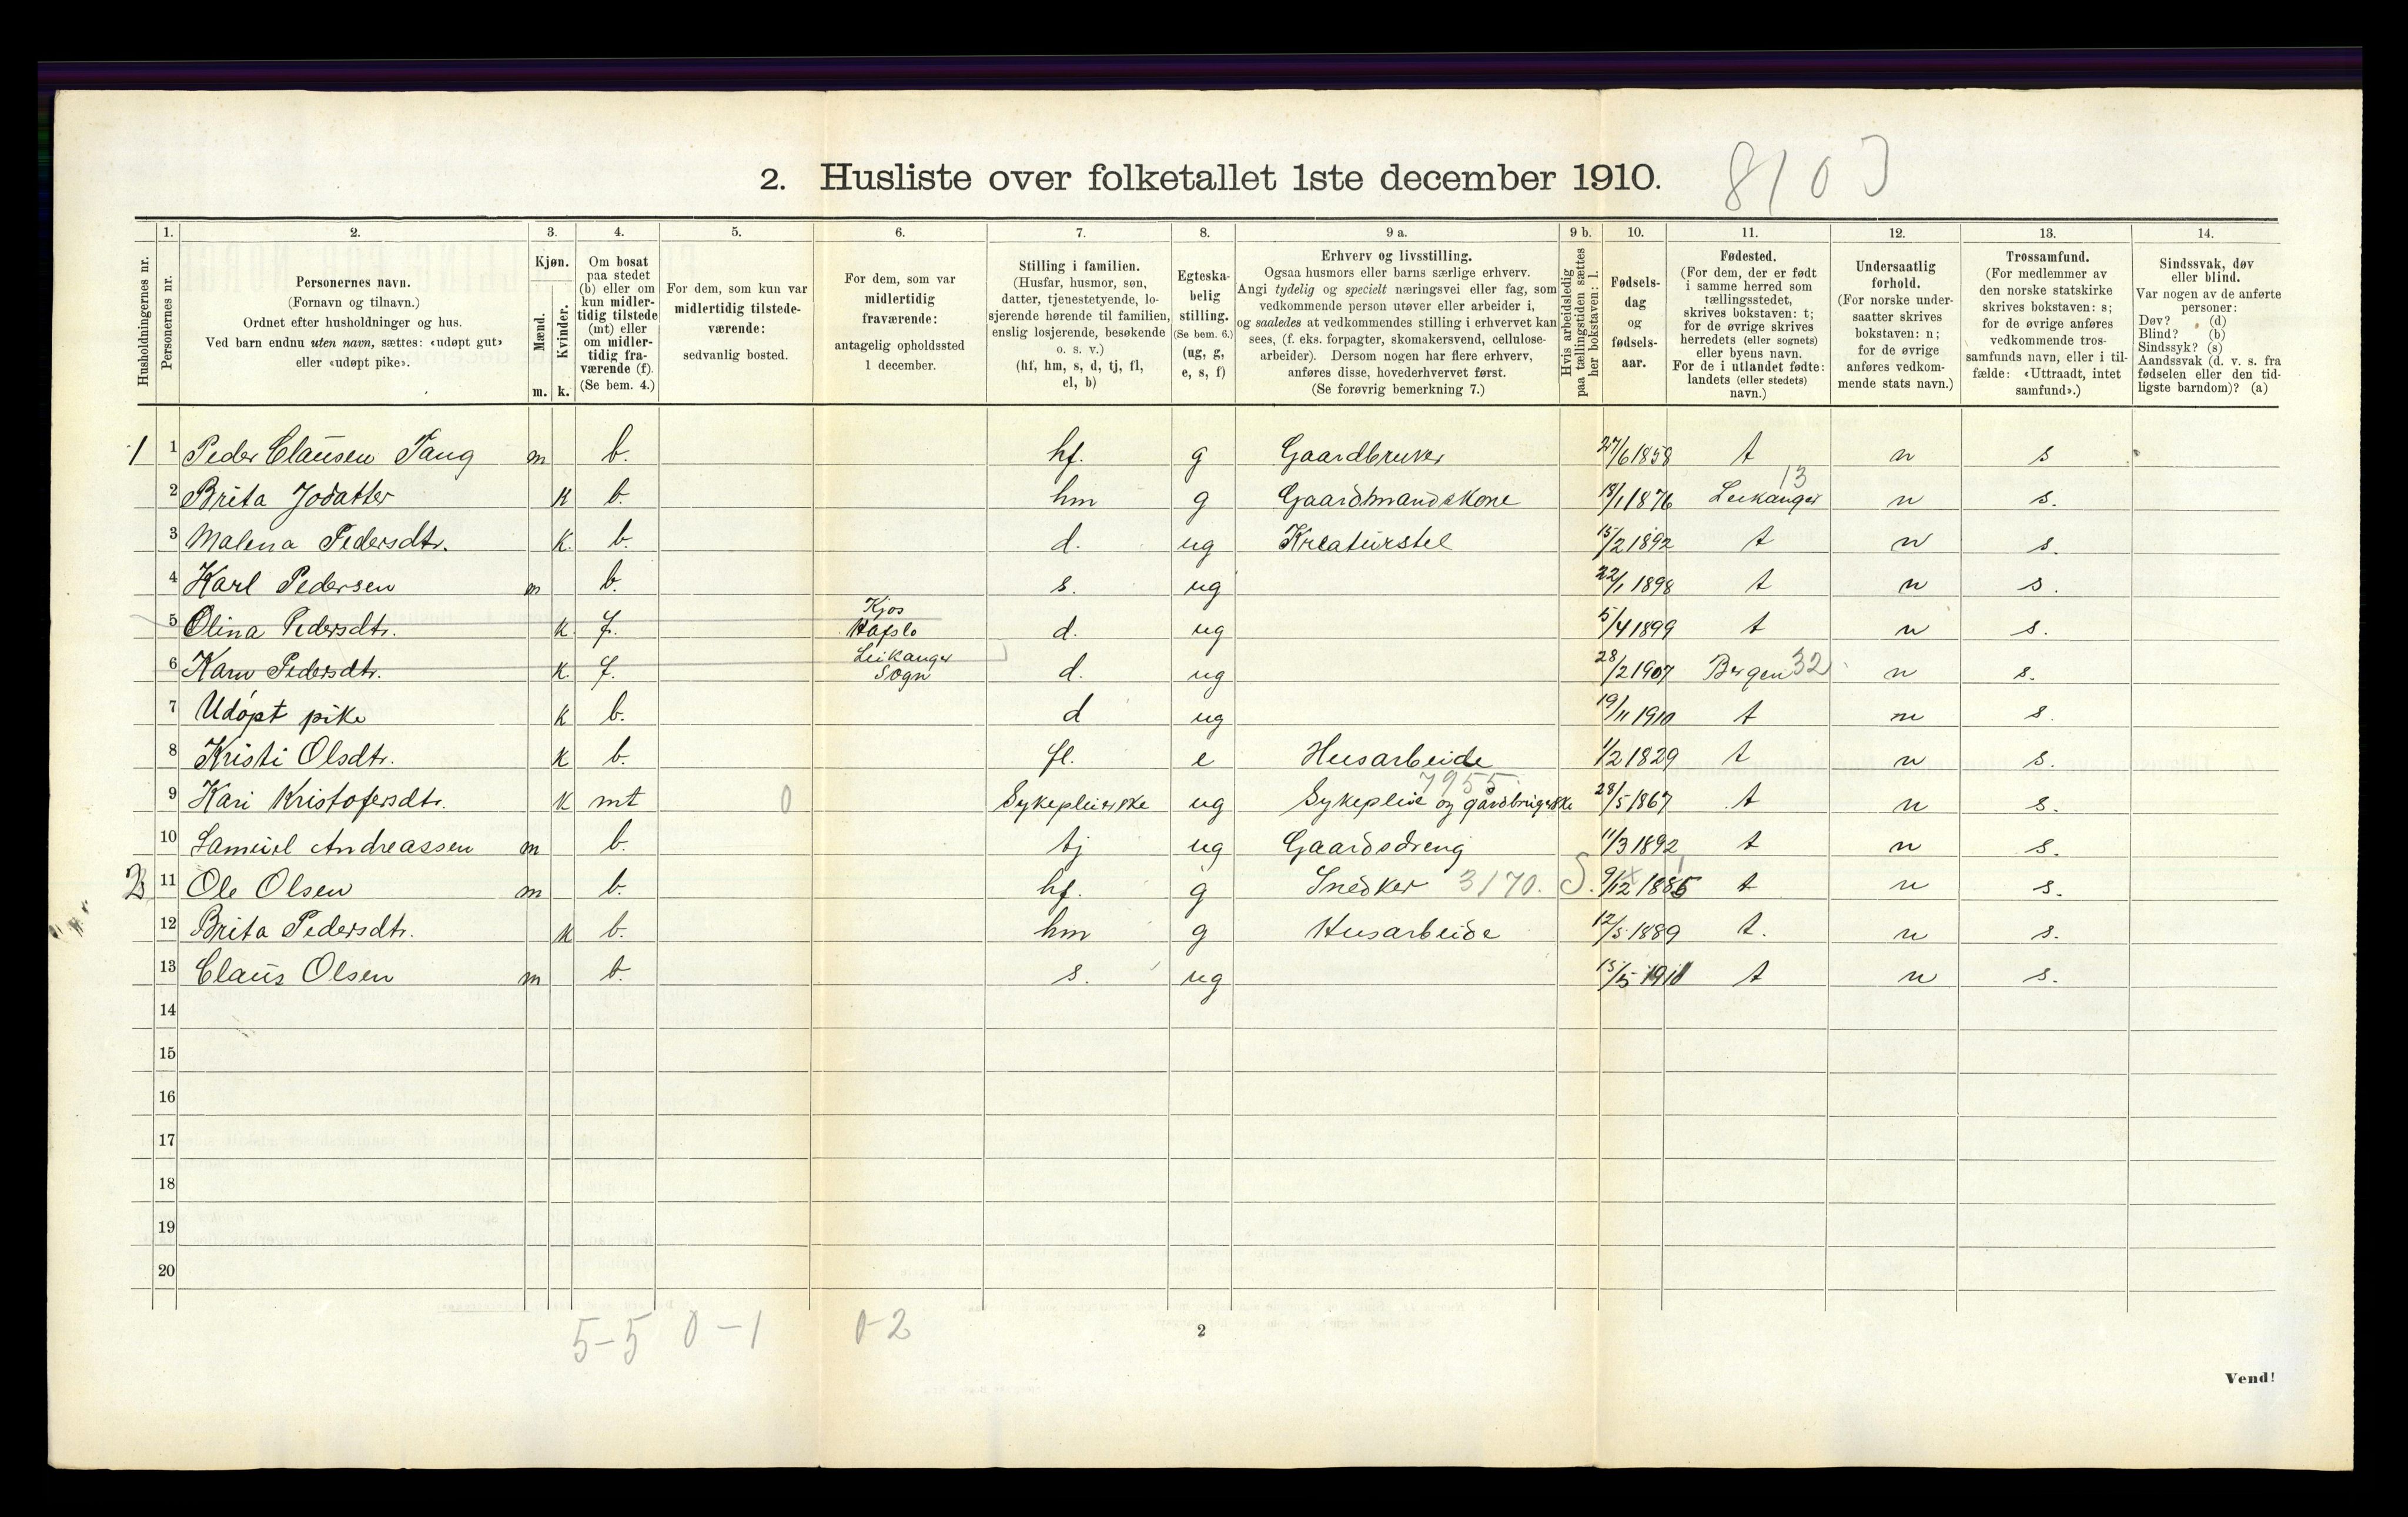 2. Husliste over folketallet 1ste december 1910. 8103
1. 2. 3. 4. 5. 6. 7. 8. 9 a. 9 b. 10. 11. 12. 13. 14.
Husholdningernes nr.
Personernes nr.
Personernes navn.
(Fornavn og tilnavn.)
Ordnet efter husholdninger og hus.
Ved barn endnu uten navn, sættes: «udøpt gut»
eller «udøpt pike».
Kjøn.
Mænd.
Kvinder.
m. k.
Om bosat
paa stedet
(b) eller om
kun midler-
tidig tilstede
(mt) eller
om midler-
tidig fra-
værende (f).
(Se bem. 4.)
For dem, som kun var
midlertidig tilstede-
værende:
sedvanlig bosted.
For dem, som var
midlertidig
fraværende:
antagelig opholdssted
1 december.
Stilling i familien.
(Husfar, husmor, søn,
datter, tjenestetyende, lo-
sjerende hørende til familien,
enslig losjerende, besøkende
o. s. v.)
(hf, hm, s, d, tj, fl,
el, b)
Egteska-
belig
stilling.
(Se bem. 6.)
(ug, g,
e, s, f)
Erhverv og livsstilling.
Ogsaa husmors eller barns særlige erhverv.
Angi tydelig og specielt næringsvei eller fag, som
vedkommende person utøver eller arbeider i,
og saaledes at vedkommendes stilling i erhvervet kan
sees, (f. eks. forpagter, skomakersvend, cellulose-
arbeider). Dersom nogen har flere erhverv,
anføres disse, hovederhvervet først.
(Se forøvrig bemerkning 7.)
Hvis arbeidsledig
paa tællingstiden sættes
her bokstaven: l.
Fødsels-
dag
og
fødsels-
aar.
Fødested.
(For dem, der er født
i samme herred som
tællingsstedet,
skrives bokstaven: t;
for de øvrige skrives
herredets (eller sognets)
eller byens navn.
For de i utlandet fødte:
landets (eller stedets)
navn.)
Undersaatlig
forhold.
(For norske under-
saatter skrives
bokstaven: n;
for de øvrige
anføres vedkom-
mende stats navn.)
Trossamfund.
(For medlemmer av
den norske statskirke
skrives bokstaven: s;
for de øvrige anføres
vedkommende tros-
samfunds navn, eller i til-
fælde: «Uttraadt, intet
samfund».)
Sindssvak, døv
eller blind.
Var nogen av de anførte
personer:
Døv? (d)
Blind? (b)
Sindssyk? (s)
Aandssvak (d. v. s. fra
fødselen eller den tid-
ligste barndom)? (a)
1 1 Peder Clausen Tang m b. hf. g Gaardbruker 27/6 1858 t n s
13
2 Brita Jodatter k b. hm g Gaardmandskone 18/1 1876 Leikanger n s.
3 Malena Pedersdtr. k. b. d. ug Kreaturstel 15/2 1892 t n s.
4 Karl Pedersen m b. s. ug 22/1 1898 t n s.
Kjos
5 Olina Pedersdtr. k. f. Hafslo d. ug 5/4 1899 t n s.
Leikanger
6 Karn Pedersdtr. k. f. Sogn d. ug 28/2 1907 Bergen 32 n s.
7 Udøpt pike k b. d ug 19/11 1910 t n s.
8 Kristi Olsdtr. k b. fl. e Husarbeide 1/2 1829 t n s.
7955
9 Kari Kristofersdtr. k mt 0 Sykepleierske ug Sykepleie og gardbrugerske 28/5 1867 t n s.
10 Samuel Andreassen m b. tj ug Gaardsdreng 11/3 1892 t n s.
2 11 Ole Olsen m b. hf. g Snedker 3170. S. 9/12 1885 t n s.
12 Brita Pedersdtr. k b. hm g Husarbeide 12/5 1889 t. n s.
13 Claus Olsen m b. s. ug 15/5 1910 t n s.
14
15
16
17
18
19
20
5-5 0-1 0-2
2
Vend!